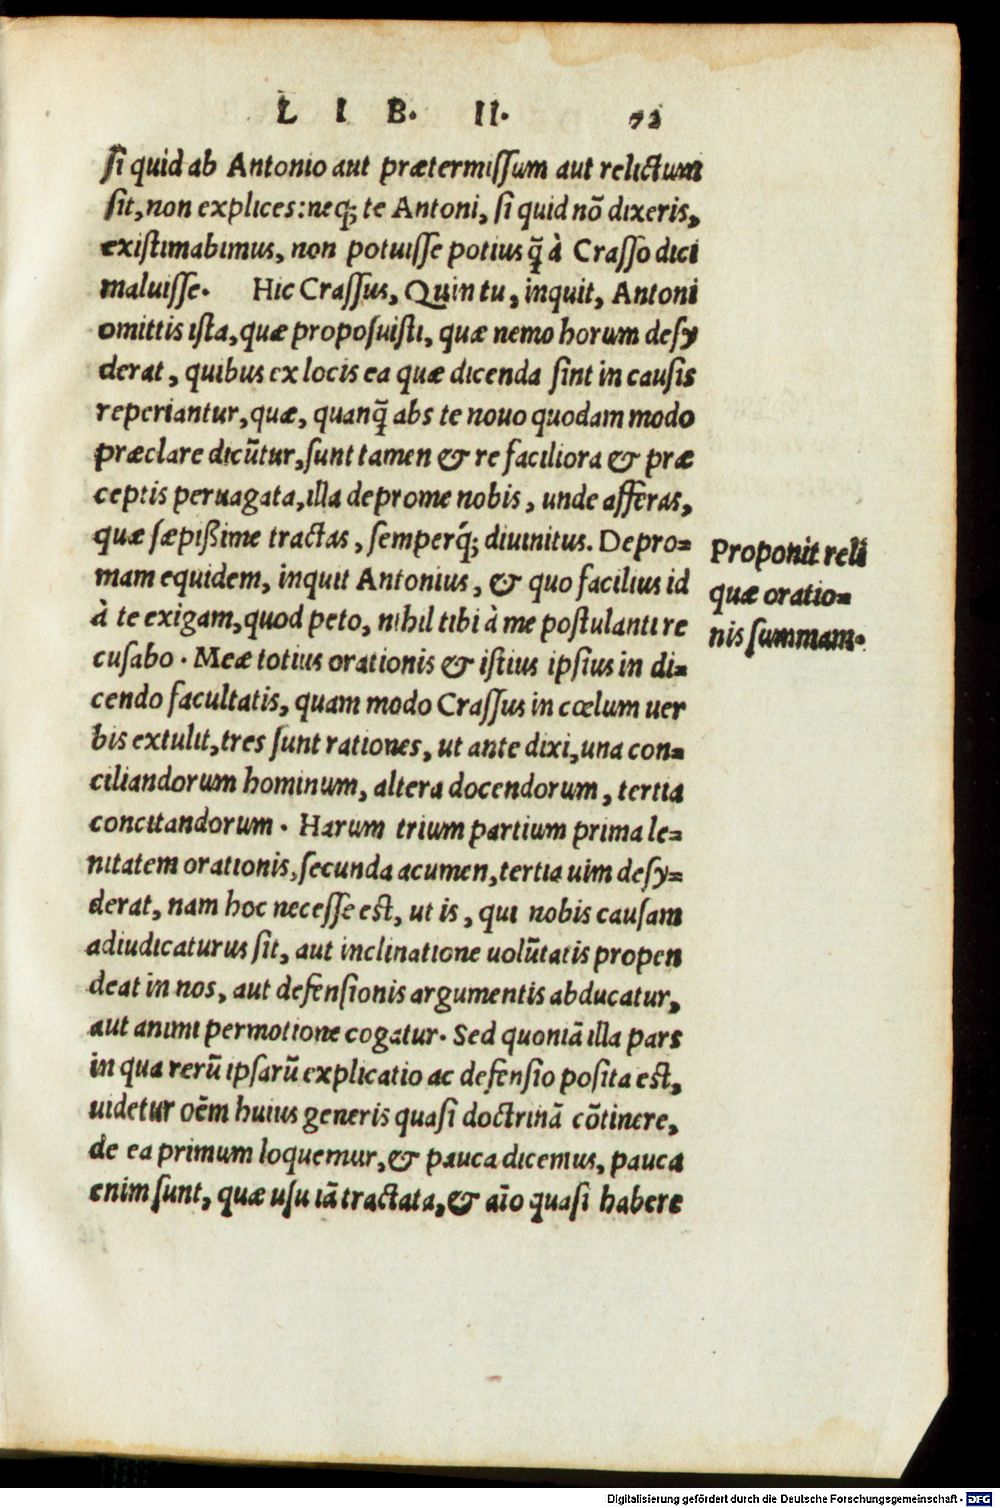 LIB. II. 92
si quid ab Antonio aut prætermissum aut relictum
sit, non explices: neq; te Antoni, si quid nō dixeris,
existimabimus, non potuisse potius q̃ à Crasso dici
maluisse. Hic Crassus, Quin tu, inquit, Antoni
omittis ista, quæ proposuisti, quæ nemo horum desy
derat, quibus ex locis ea quæ dicenda sint in causis
reperiantur, quæ, quanq̃ abs te nouo quodam modo
præclare dicūtur, sunt tamen & re faciliora & præ
ceptis peruagata, illa deprome nobis, unde afferas,
quæ sæpißime tractas, semperq́; diuinitus. Depro=
mam equidem, inquit Antonius, & quo facilius id
à te exigam, quod peto, nihil tibi à me postulanti re
cusabo. Meæ totius orationis & istius ipsius in di=
cendo facultatis, quam modo Crassus in cœlum uer
bis extulit, tres sunt rationes, ut ante dixi, una con=
ciliandorum hominum, altera docendorum, tertia
concitandorum. Harum trium partium prima le=
nitatem orationis, secunda acumen, tertia uim desy=
derat, nam hoc necesse est, ut is, qui nobis causam
adiudicaturus sit, aut inclinatione uolūtatis propen
deat in nos, aut defensionis argumentis abducatur,
aut animi permotione cogatur. Sed quoniā illa pars
in qua rerū ipsarū explicatio ac defensio posita est,
uidetur oēm huius generis quasi doctrinā cōtinere,
de ea primum loquemur, & pauca dicemus, pauca
enim sunt, quæ usu iā tractata, & aīo quasi habere
Proponit reli
quæ oratio=
nis summam.
Digitalisierung gefördert durch die Deutsche Forschungsgemeinschaft - DFG